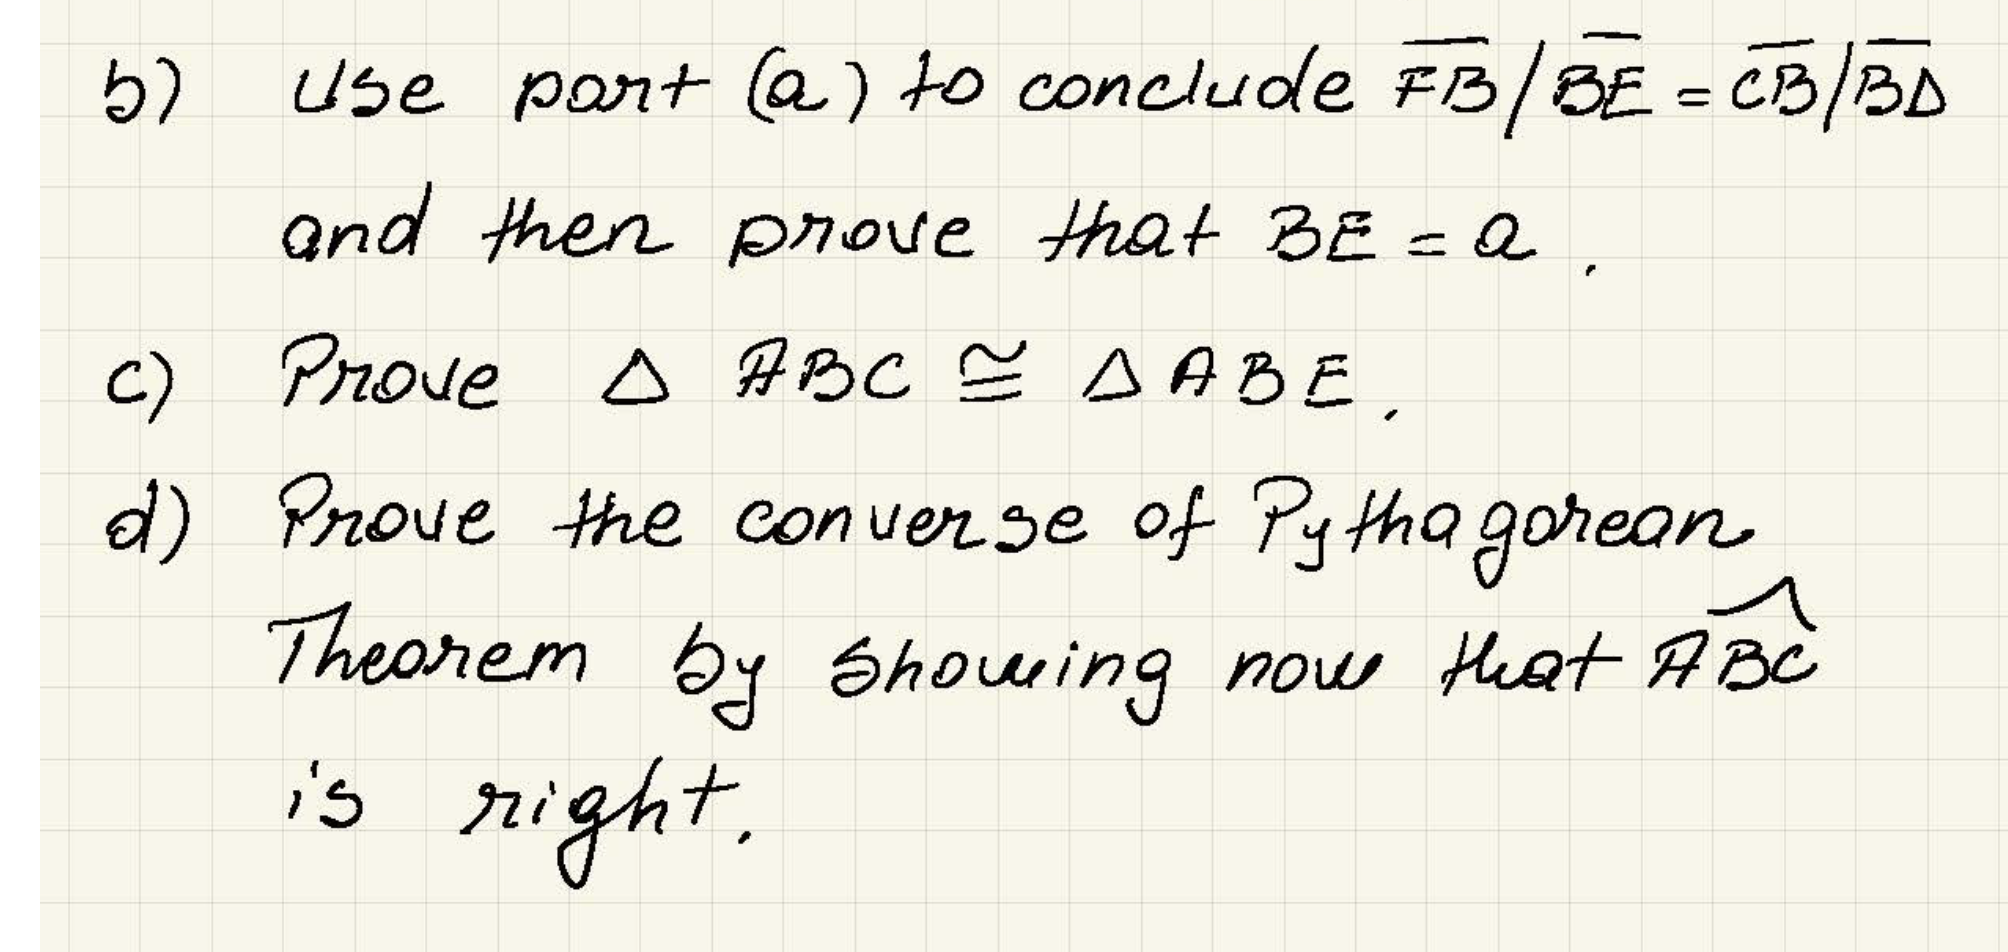 b) Use part (a) to conclude F̅B̅/B̅E̅ = C̅B̅/B̅Δ̅
and then prove that BE = a.
c) Prove Δ ABC ≅ Δ ABE.
d) Prove the converse of Pythagorean
Theorem by showing now that ABĈ
is right.